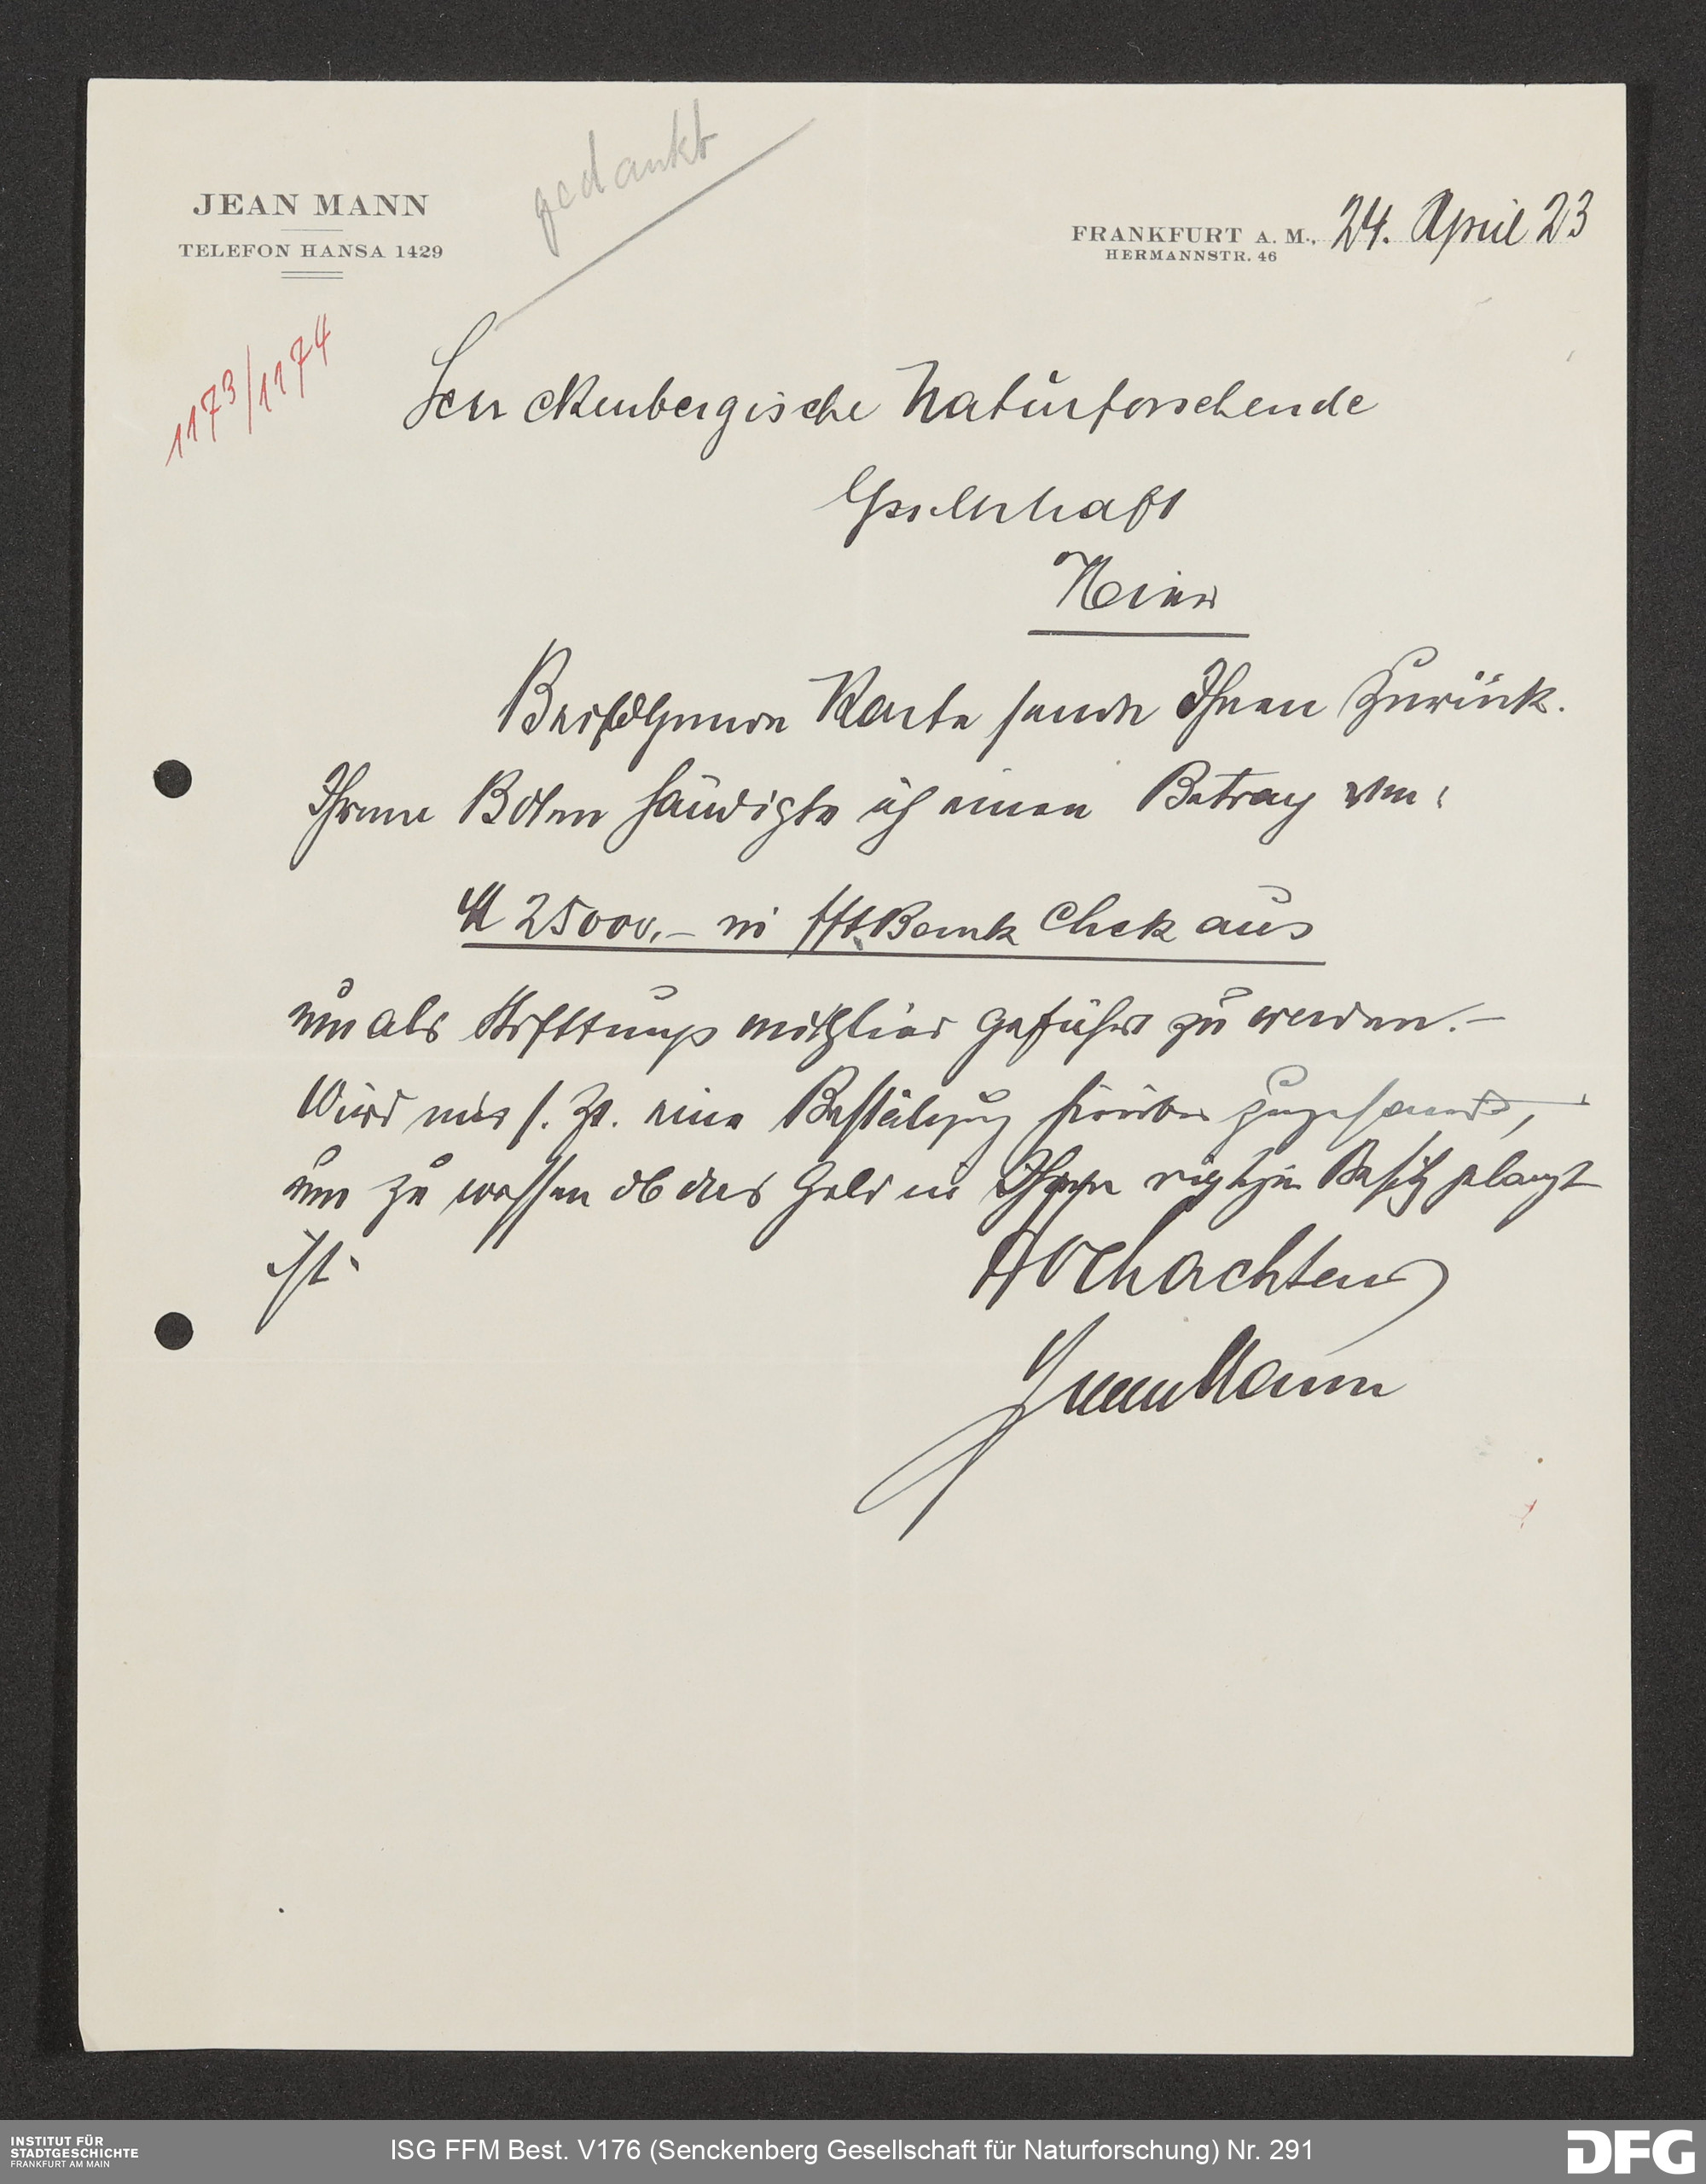 gedankt
JEAN MANN
TELEFON HANSA 1429
FRANKFURT A. M., 24. April 23
HERMANNSTR. 46
1173/1174
Senckenbergische Naturforschende
Gesellschaft
Hier
Beifolgende Karte sende Ihnen zurück.
Ihrem Boten händigte ich einen Betrag von:
M 25000.– in Fft. Bank Chek aus
um als Stiftungs mitglied geführt zu werden.–
Wird mir s. Zt. eine Bestätigung hierüber zugesandt,
um zu wissen ob das Geld in Ihren richtigen Besitz gelangt
ist.
Hochachtend
Jean Mann
INSTITUT FÜR
STADTGESCHICHTE
FRANKFURT AM MAIN
ISG FFM Best. V176 (Senckenberg Gesellschaft für Naturforschung) Nr. 291
DFG